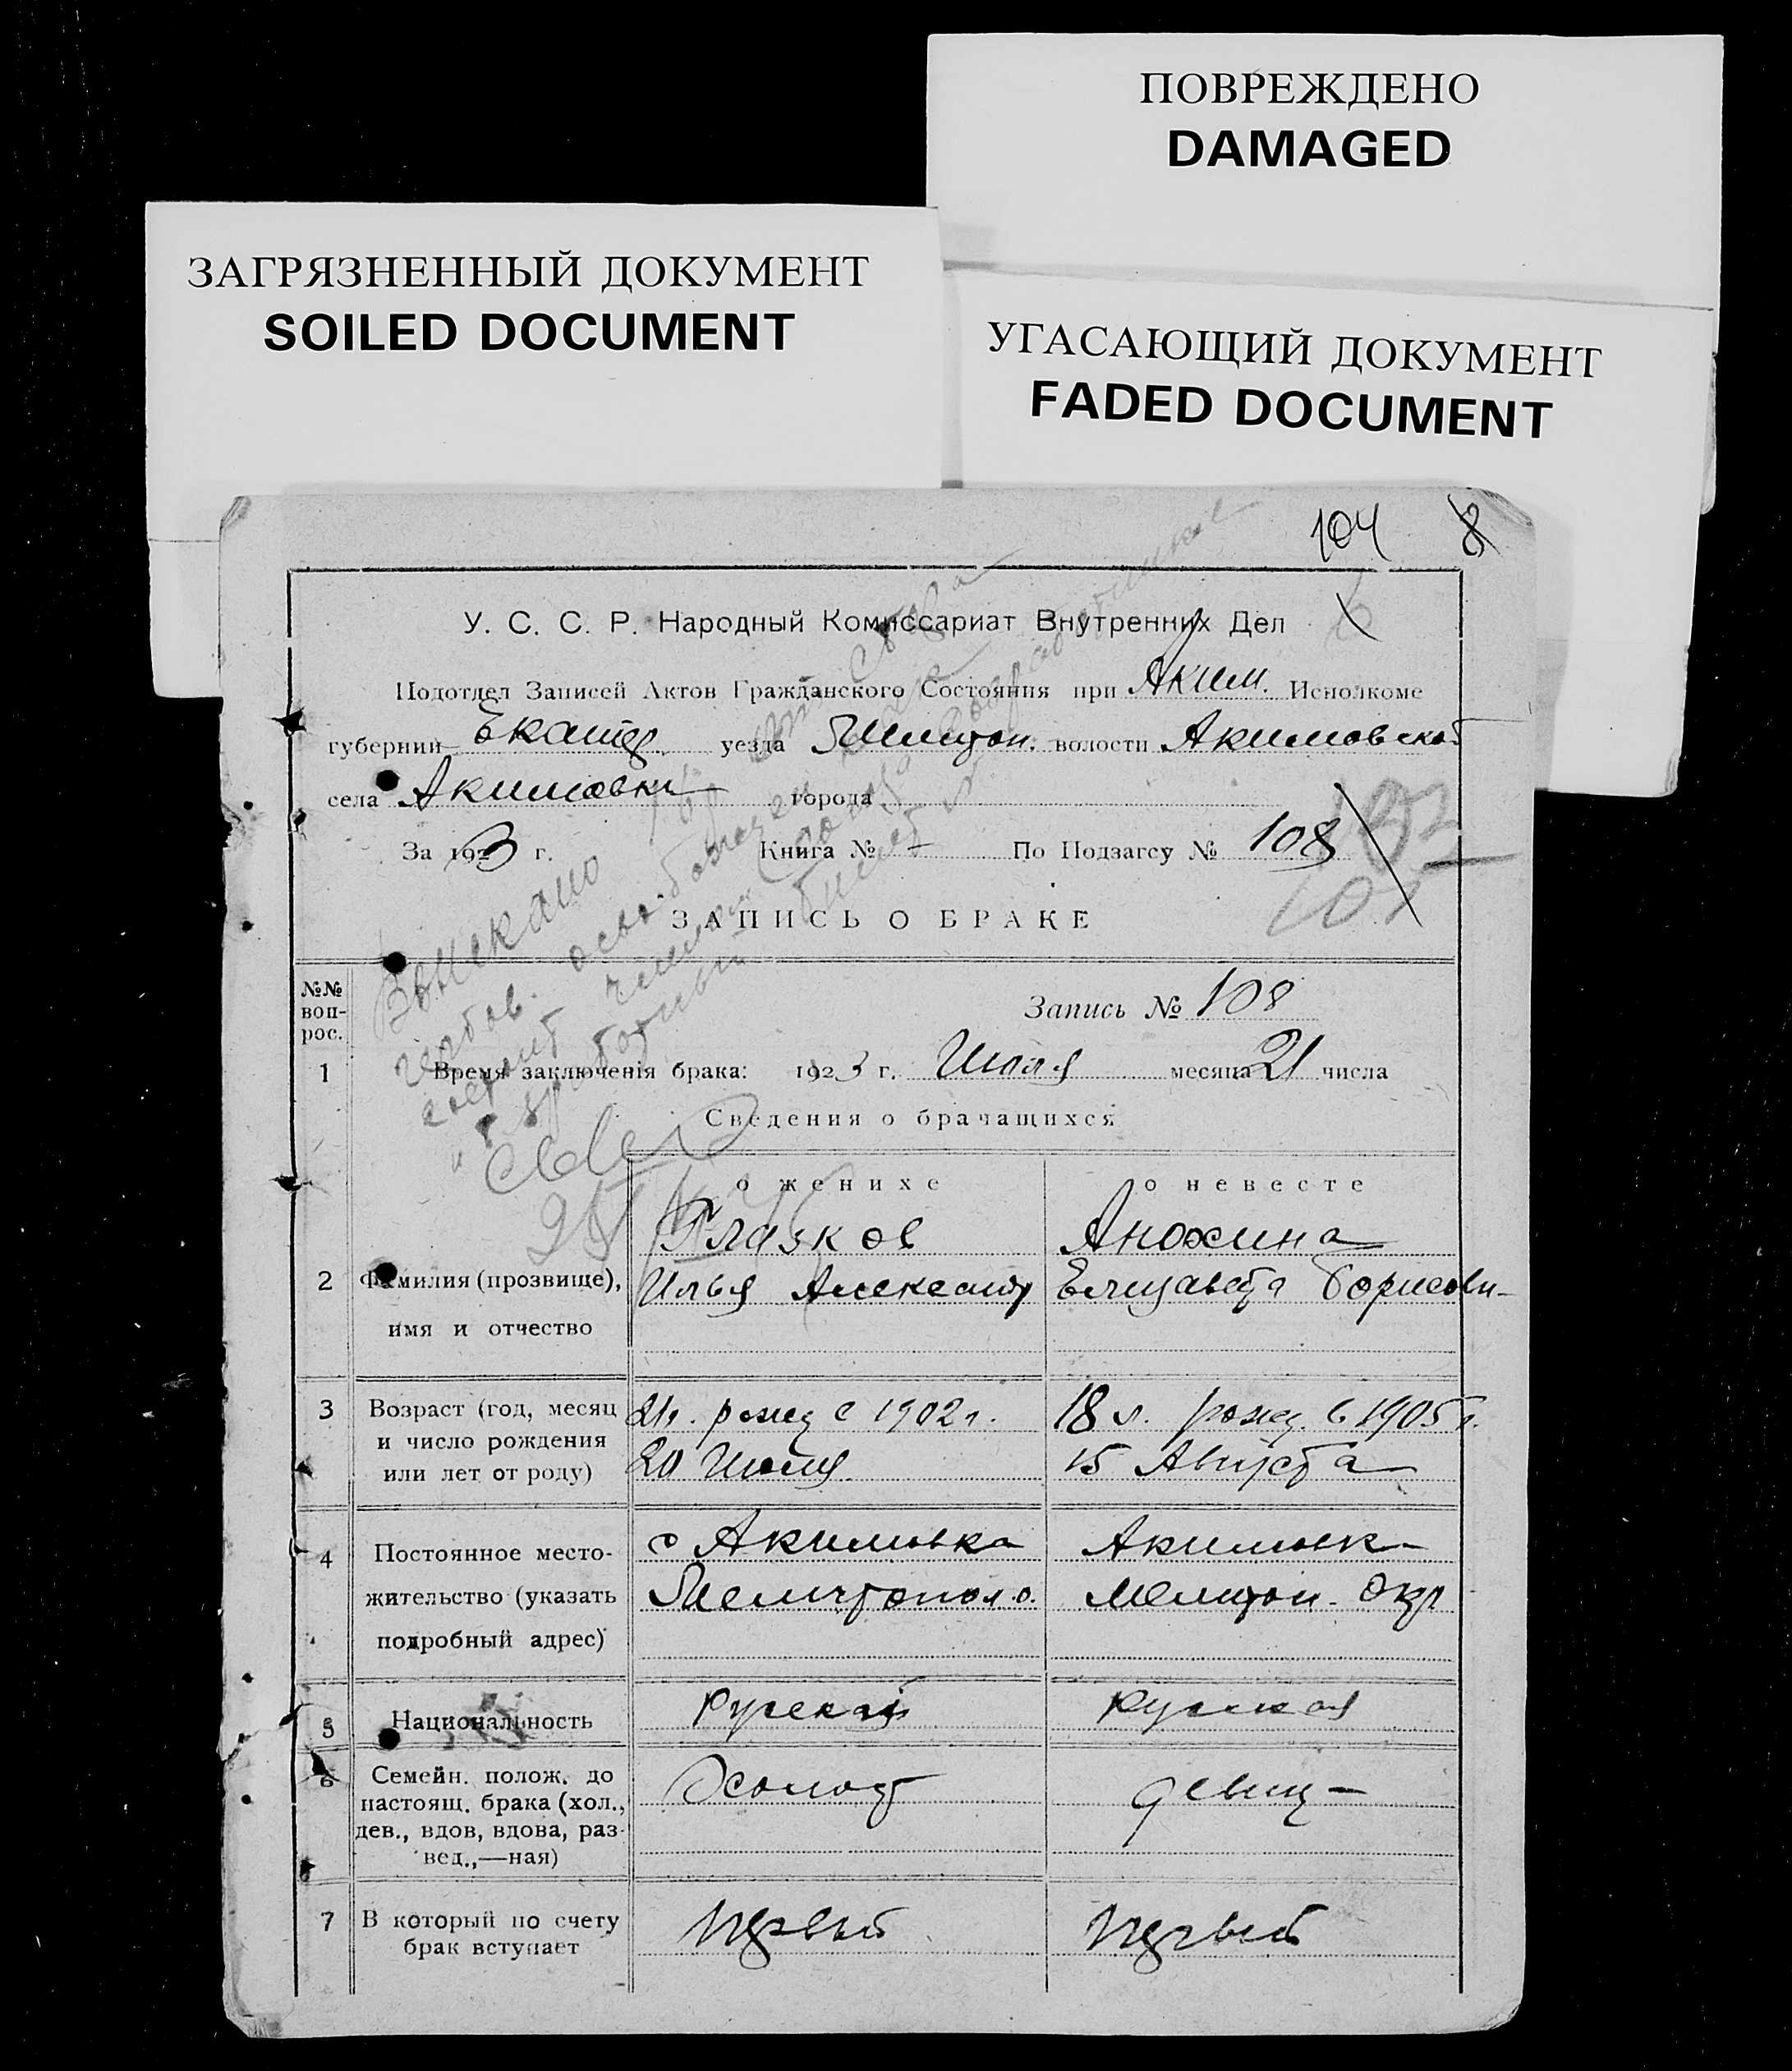 ПОВРЕЖДЕНО
DAMAGED
ЗАГРЯЗНЕННЫЙ ДОКУМЕНТ
SOILED DOCUMENT
УГАСАЮЩИЙ ДОКУМЕНТ
FADED DOCUMENT
104 8
У. С. С. Р. Народный Комиссариат Внутренних Дел
Подотдел Записей Актов Гражданского Состояния при Аким. Исполкоме
губернии Екатер. уезда Мелитоп. волости Акимовской
села Акимовки города
За 1923 г. Книга № - По Подзагсу № 108
ЗАПИСЬ О БРАКЕ
№№ воп-рос.
Запись № 108
1 Время заключенія брака: 1923 г. Июля месяца 21 числа
Сведения о брачащихся
о женихе о невесте
Глазков Анохина
2 Фамилия (прозвище), Илья Александр Елизавета Борисовн-
имя и отчество
3 Возраст (год, месяц 21г. рожд с 1902 г. 18 л. рожд. с 1905 г.
и число рождения
или лет от роду) 20 Июля 15 Августа
4 Постоянное место- с Акимовка Акимовк-
жительство (указать Мелитопол.о. Мелитоп. Окр
подробный адрес)
5 Национальность Русский Русская
6 Семейн. полож. до Холост девиц-
настоящ. брака (хол.,
дев., вдов, вдова, раз-
вед.,—ная)
7 В который по счету Первый Первый
брак вступает
Взыскано